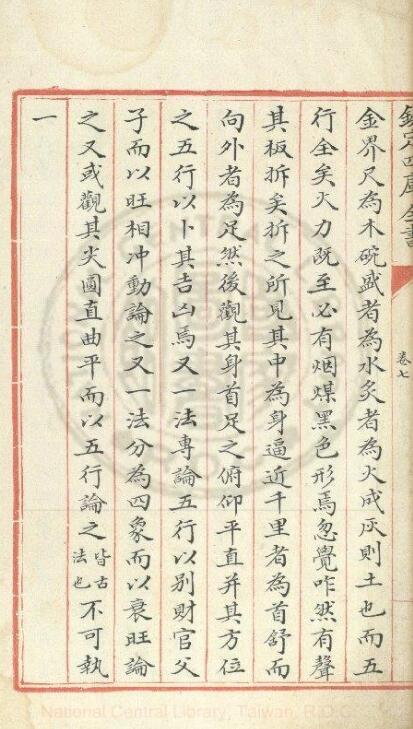 欽定四庫全書
卷七
金界尺為木碗盛者為水炙者為火成灰則土也而五
行全矣火力既至必有烟煤黑色形焉忽覺咋然有聲
其板拆矣拆之所見其中為身逼近千里者為首舒而
向外者為足然後觀其身首足之俯仰平直并其方位
之五行以卜其吉凶焉又一法專論五行以别財官父
子而以旺相冲動論之又一法分為四象而以衰旺論
之又或觀其尖圓直曲平而以五行論之皆古法也不可執
一
National Central Library, Taiwan, R.O.C.